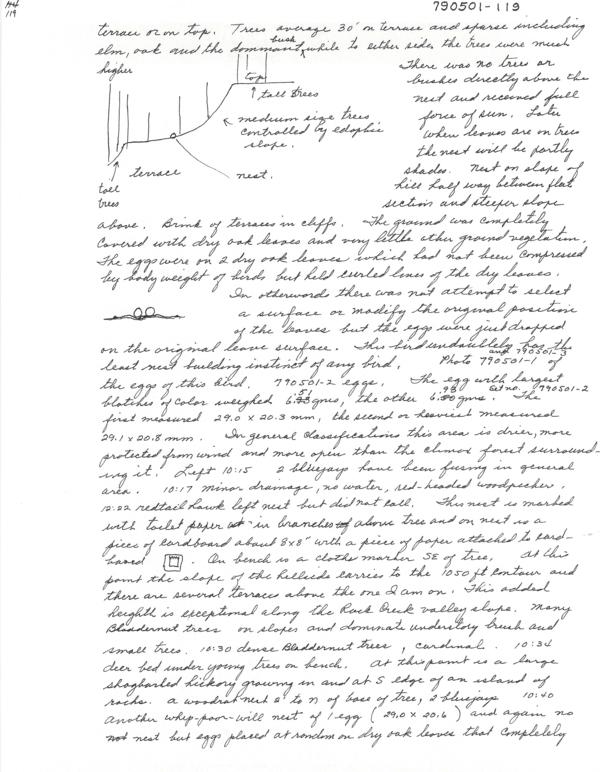 H4
119
790501-119
terrace or on top. Trees average 30' on terrace and sparse including
elm, oak and the dominant bush while to either side the trees were much
higher
There was no trees or
bushes directly above the
nest and received full
force of sun. Later
when leaves are on trees
the nest will be partly
shades. Nest on slope of
hill half way between flat
section and steeper slope
top
tall trees
medium size trees
controlled by edaphic
slope.
terrace
nest.
tall
trees
above. Brink of terraces in cliffs. The ground was completely
covered with dry oak leaves and very little other ground vegetation.
The eggs were on 2 dry oak leaves which had not been compressed
by body weight of birds but held curled lines of the dry leaves.
In otherwords there was not attempt to select
a surface or modify the original position
of the leaves but the eggs were just dropped
on the original leave surface. This bird undoubtely has the
least nest building instinct of any bird. Photo 790501-1 and 790501-3 of
the eggs of this bird. 790501-2 eggs. The egg with largest
blotches of color weighed 6.51 gms, the other 6.93 gms. Set no. 790501-2 The
first measured 29.0 x 20.3 mm, the second or heaviest measured
29.1 x 20.8 mm. In general classifications this area is drier, more
protected from wind and more open than the climax forest surround-
ing it. Left 10:15 2 bluejays have been fussing in general
area. 10:17 minor drainage, no water, red-headed woodpecker.
12:22 redtail hawk left nest but did not call. This nest is marked
with toilet paper in branches above tree and on nest is a
piece of cardboard about 8x8" with a piece of paper attached to card-
board. On bench is a clothe marker SE of tree. At this
point the slope of the hillside carries to the 1050 ft contour and
there are several terraces above the one I am on. This added
heighth is exceptional along the Rock Creek valley slope. Many
Bladdernut trees on slopes and dominate understory brush and
small trees. 10:30 dense Bladdernut trees, cardinal. 10:34
deer bed under young trees on bench. At this point is a large
shagbarked hickory growing in and at S edge of an island of
rocks. A woodrat nest 8' to N of base of tree, 2 bluejays 10:40
Another whip-poor-will nest of 1 egg (29.0 x 20.6) and again no
nest but eggs placed at random on dry oak leaves that completely